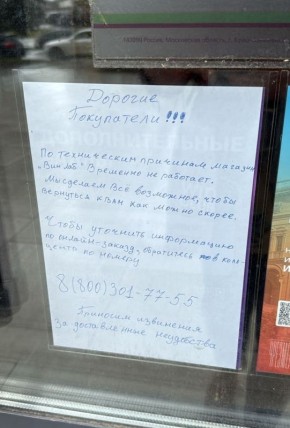 Дорогие
Покупатели!!!
По техническим причинам магазин
„Винлаб" Временно не работает.
Мы сделаем Всё возможное, чтобы
вернуться к вам как можно скорее.
Чтобы уточнить информацию
по онлайн-заказу, обратитесь в кол-
центр по номеру
8(800)301-77-55
Приносим извинения
За доставленные неудобства